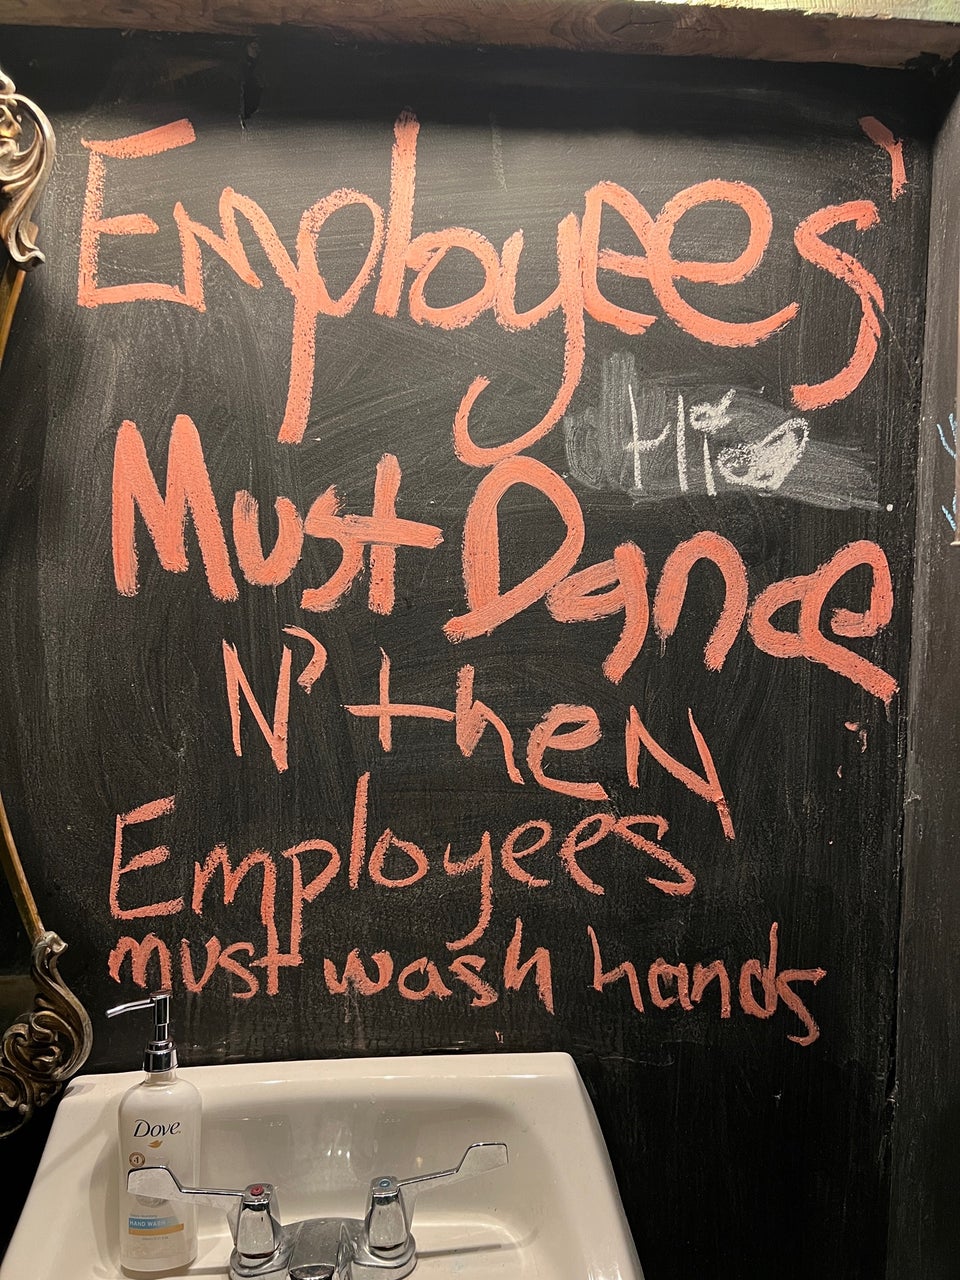 Employees'
Hi
Must Dance
N' theN
Employees
must wash hands
Dove
HAND WASH